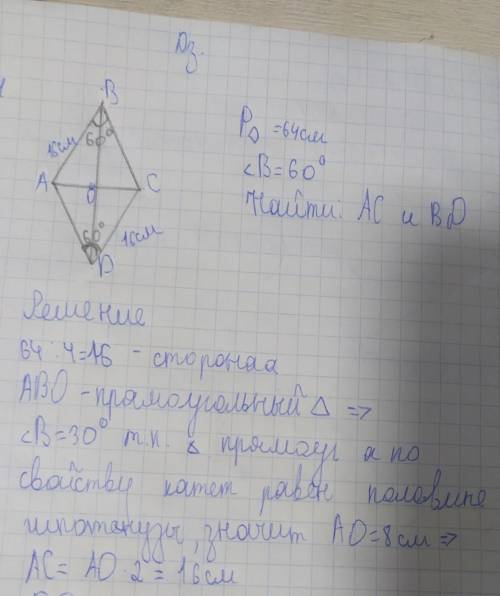 Дз.
B
60°
16см
A
O
C
60°
16см
D
P◊ =64см
∠B=60°
Найти: AC и BD
Решение
64:4=16 - сторонаа
ABO - прямоугольный △ =>
∠B=30° т.к. △ прямоуг а по
свойству катет равен половине
гипотенузы, значит AO=8см =>
AC= AO·2 = 16см